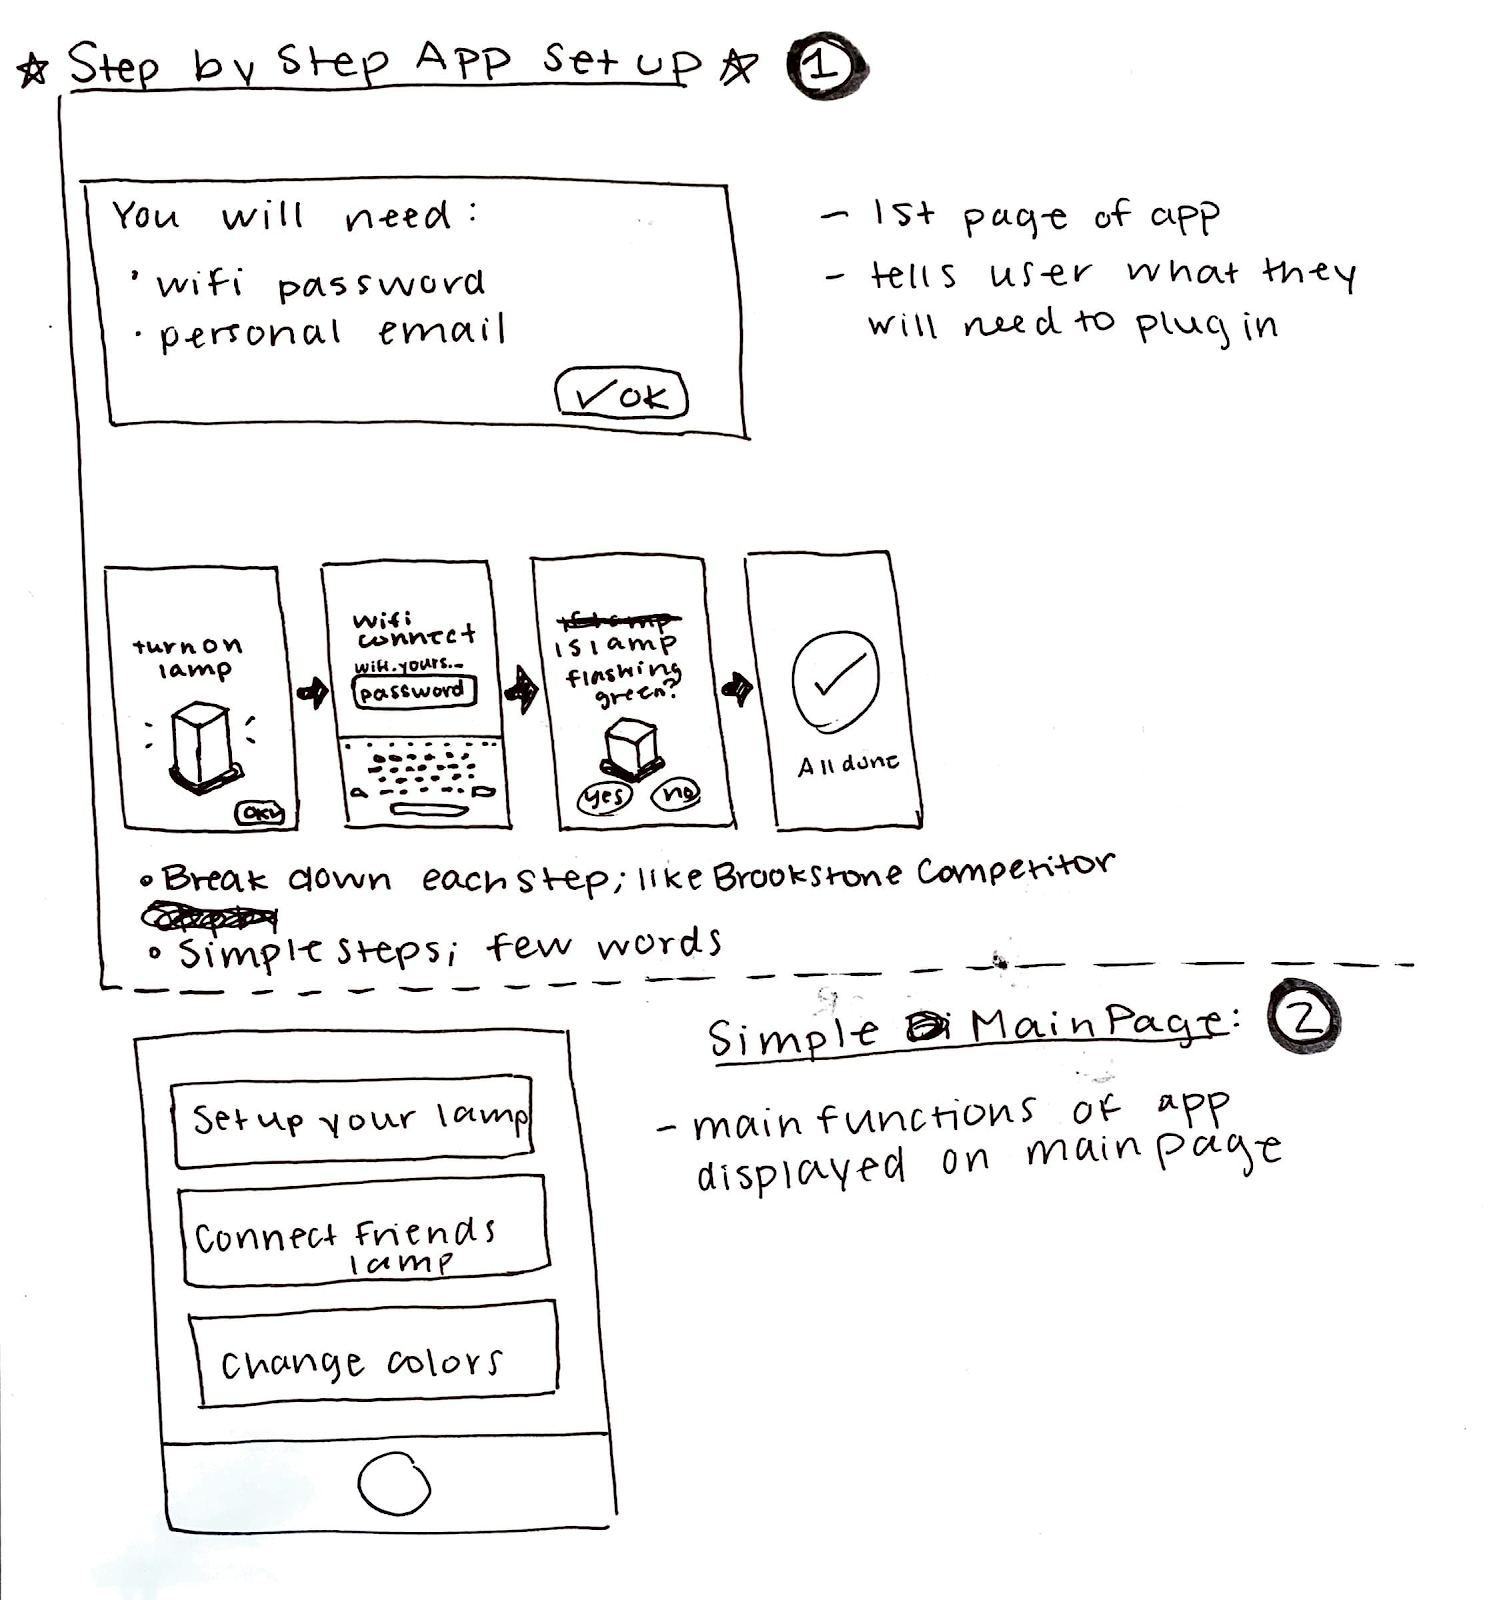 Step by Step App Set up 1
You will need:
• wifi password
• personal email
✓ OK
- 1st page of app
- tells user what they
will need to plug in
turn on
lamp
okay
wifi
connect
wifi.yours...
password
Is lamp
flashing
green?
yes no
All done
• Break down each step; like Brookstone Competitor
• Simple steps; few words
Simple Main Page: 2
- main functions of app
displayed on main page
Set up your lamp
Connect Friends
lamp
Change colors